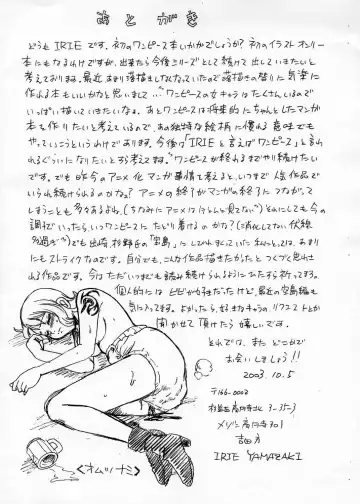 あとがき
どうもIRIEです。初のワンピース本いかがでしょうか？初のイラストオンリー
本にもなるわけですが、出来たら今後シリーズとして続けて出していきたいと
考えております。最近あまり落描きしなくなっていたので落描きの替りに気楽に
作れる本もいいかなと思いまして…ワンピースの女キャラはたくさんいるので
いっぱい描いていきたいなぁ。あとワンピースは将来的にちゃんとしたマンガ
本を作りたいと考えているので、あの独特な絵柄に慣れる意味でも
やっていこうというわけであります。今後「IRIEと言えばワンピース」と言わ
れるぐらいになりたいと考えてます。ワンピースが終わるまでやり続けたい
です。でも昨今のアニメ化マンガ事情を考えると、いつまで人気作品で
いられ続けられるのかなぁ？アニメの終了がマンガの終了につながって
しまうことも多々あるよね。(ちなみにアニメはほとんど見てない)それにしても今の
調子でいったらいつワンピースにたどり着けるのかな？(消化してない伏線
多過ぎ)でも出崎、杉野氏の「宝島」にしびれまくっていた私にとっては、あまり
にもストライクなのです。自分でも、こんな作品描きたかったとつくづく思わさ
れる作品です。今はただいつまでも読み続けられるようにひたすら祈ってます。
個人的にはビビが好きだったけど、最近の空島編も
気に入ってます。よかったら、好きなキャラのリクエストとか
聞かせて頂けたら嬉しいです。
それでは、またどこかで
お会いしましょう！！
2003.10.5
〒166-0002
杉並区高円寺北3-35-3
メゾン高円寺301
吉田方
IRIE YAMAZAKI
＜オムツナミ＞